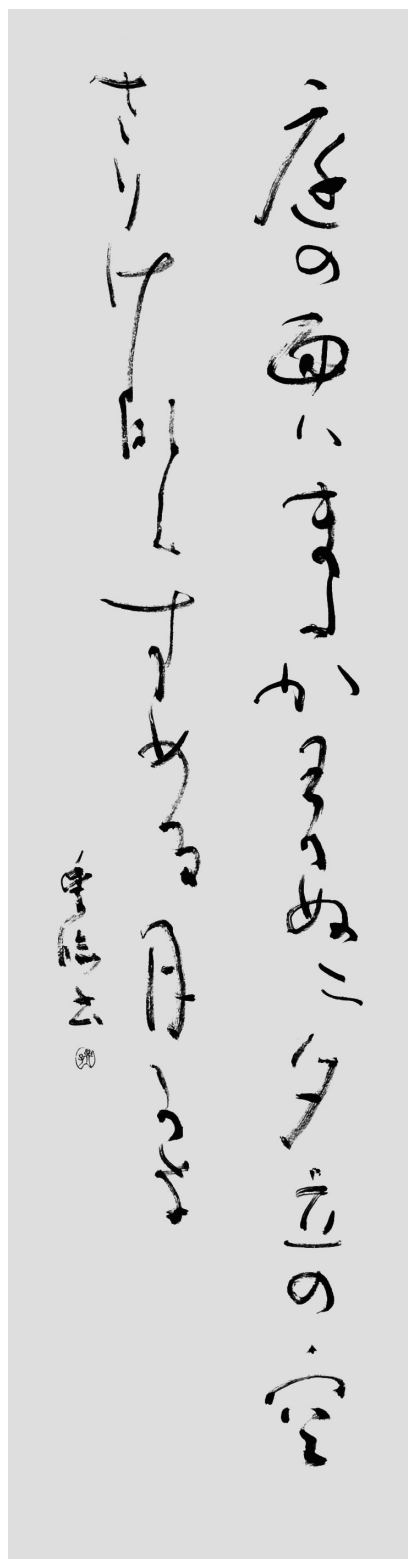 庭の面はまたかわかぬに夕立の空
さりけなくすめる月かな